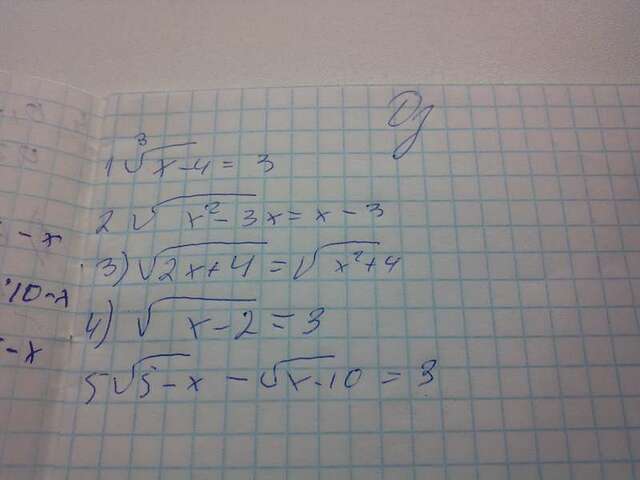 Дз
1 ∛x-4 = 3
2 √x²-3x = x-3
3) √2x+4 = √x²+4
4) √x-2 = 3
5 √5-x - √x-10 = 3
-x
10-x
-x